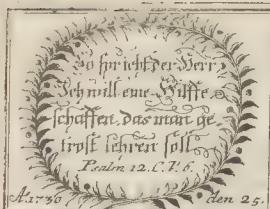 So spricht der Herr
Ich will eine Hülffe
schaffen, das man ge
trost lehren soll
Psalm 12. C. V. 6.
A. 1730 den 25.